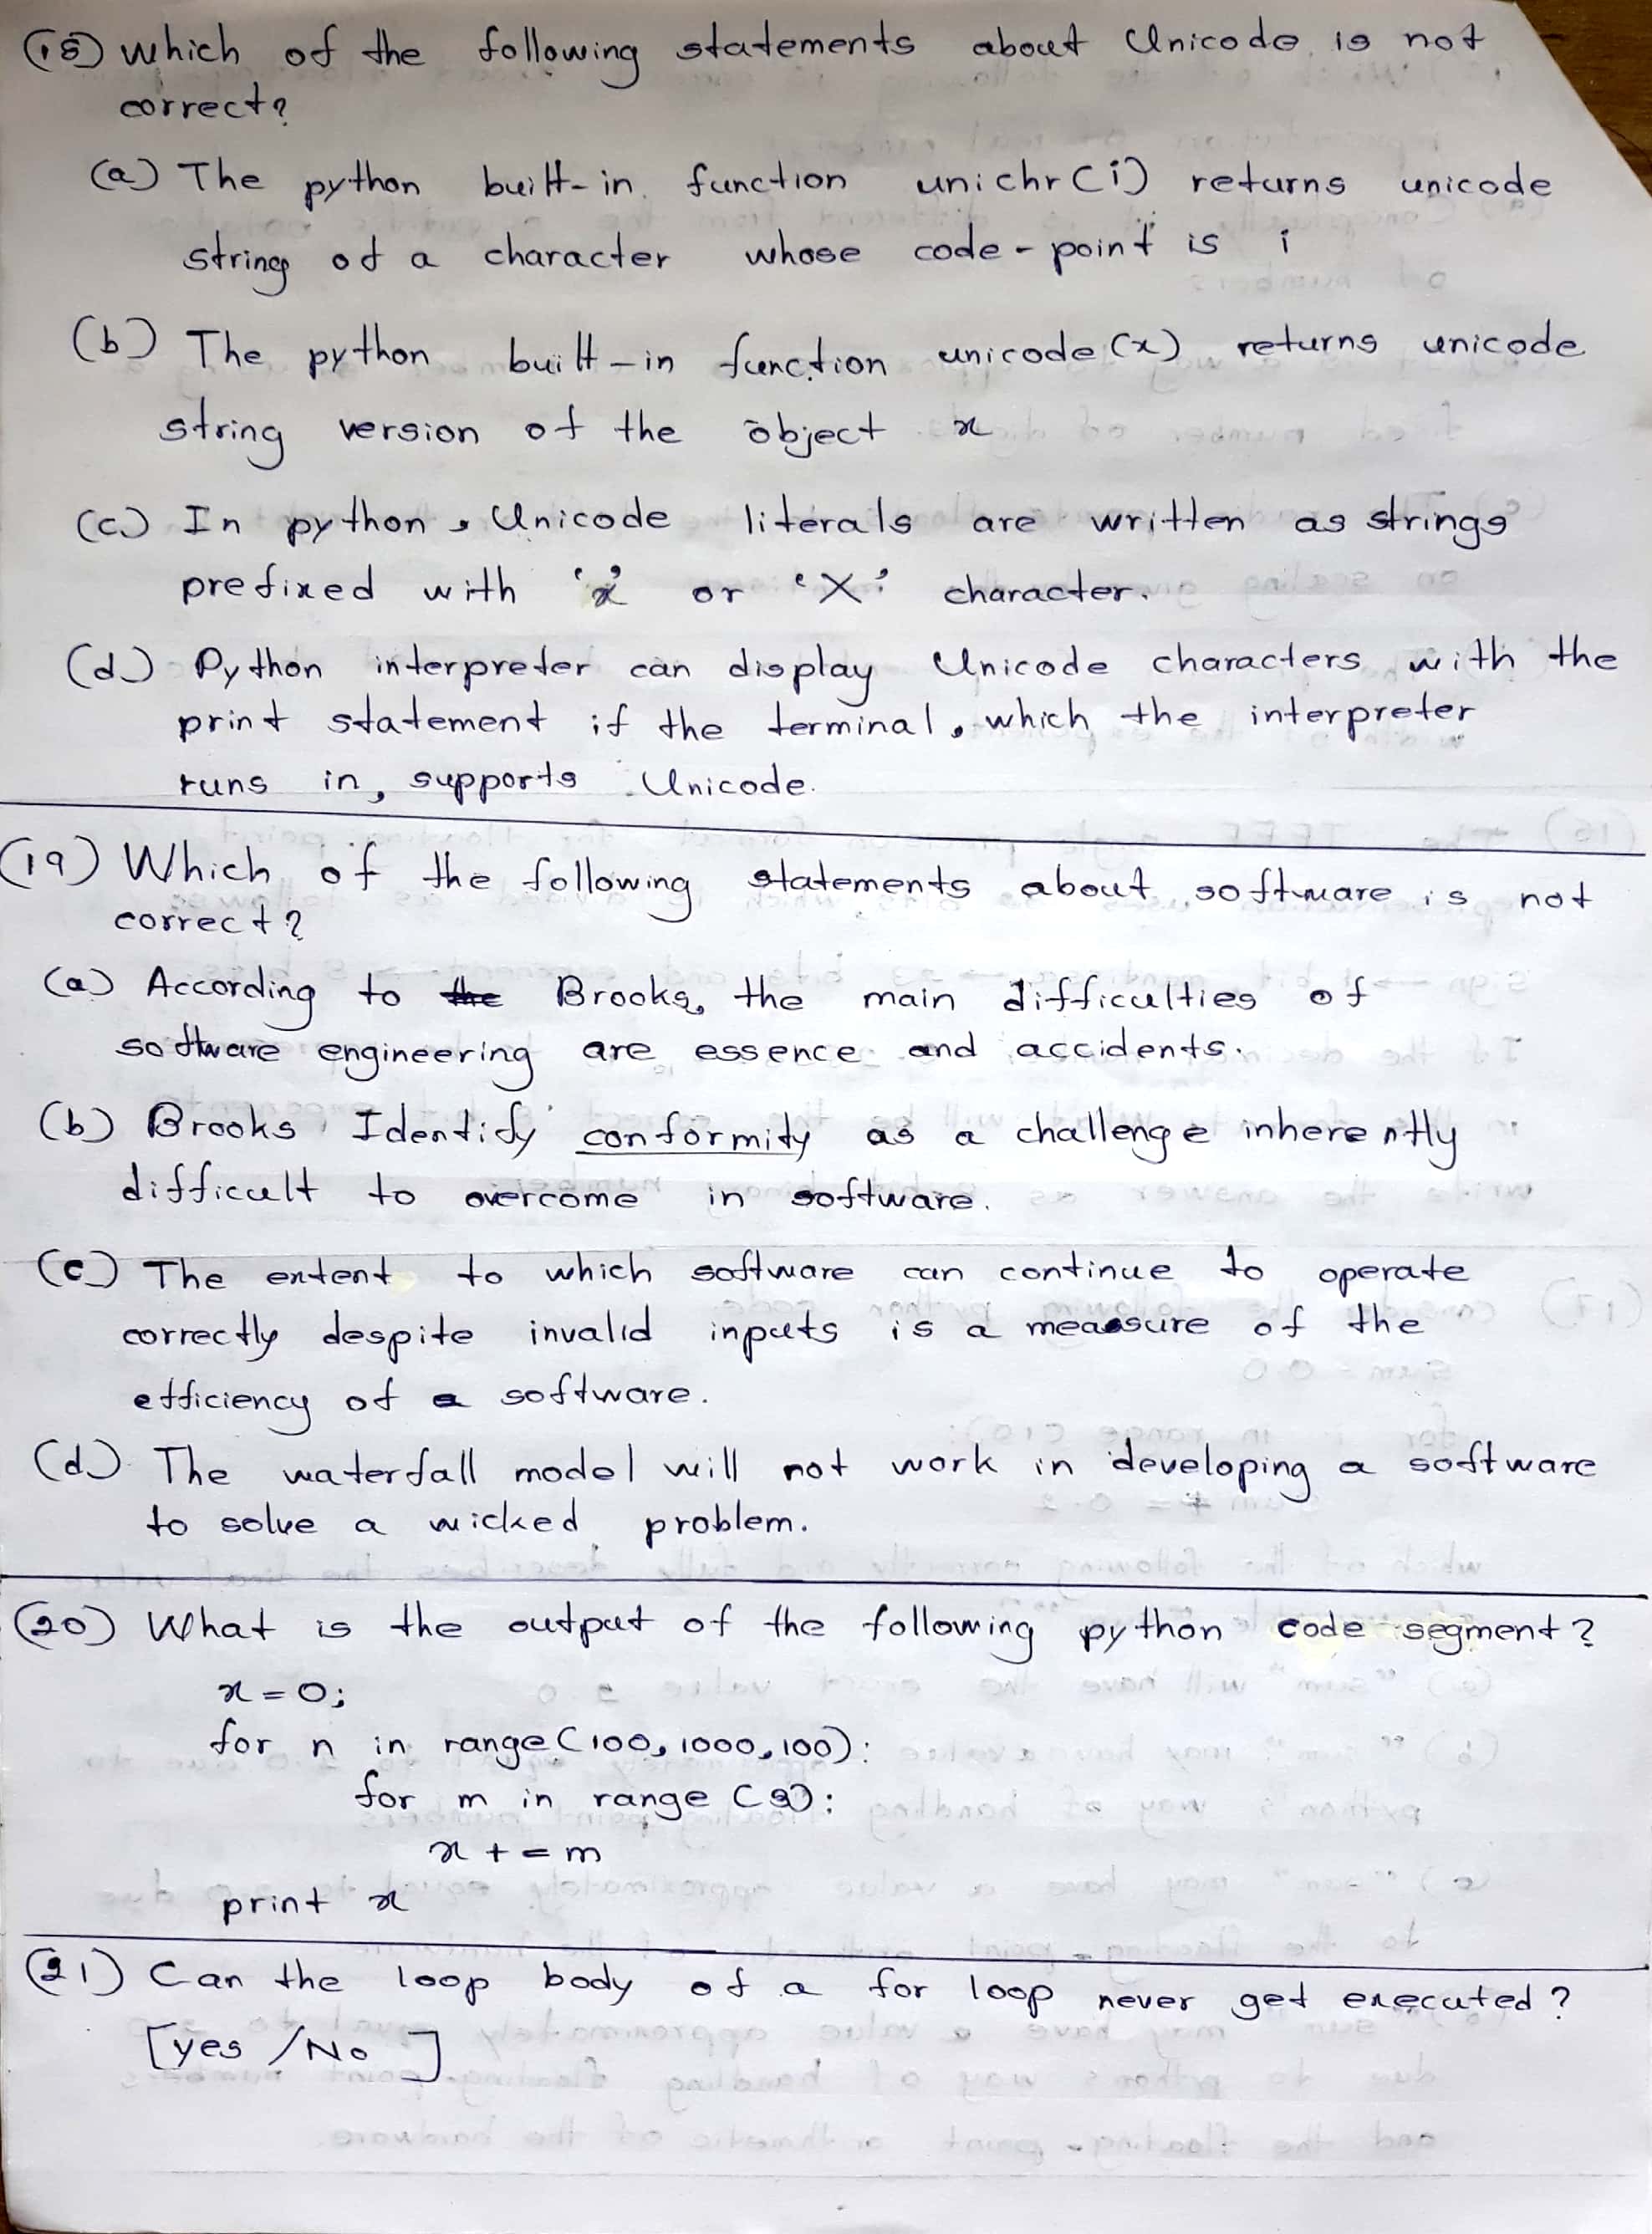 (18) Which of the following statements about Unicode is not
correct?
(a) The python built-in function unichr(i) returns unicode
string of a character whose code-point is i
(b) The python built-in function unicode(x) returns unicode
string version of the object x
(c) In python, Unicode literals are written as strings
prefixed with 'x' or 'X' character.
(d) Python interpreter can display Unicode characters with the
print statement if the terminal, which the interpreter
runs in, supports Unicode.
(19) Which of the following statements about software is not
correct?
(a) According to the Brooks, the main difficulties of
software engineering are essence and accidents.
(b) Brooks Identify conformity as a challenge inherently
difficult to overcome in software.
(c) The extent to which software can continue to operate
correctly despite invalid inputs is a measure of the
efficiency of a software.
(d) The waterfall model will not work in developing a software
to solve a wicked problem.
(20) What is the output of the following python code segment?
x=0;
for n in range(100,1000,100):
for m in range ():
x += m
print x
(21) Can the loop body of a for loop never get executed?
[yes /No ]